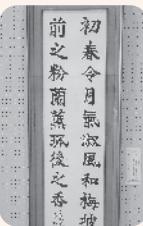 初春令月氣淑風和梅披
前之粉蘭薫珮後之香